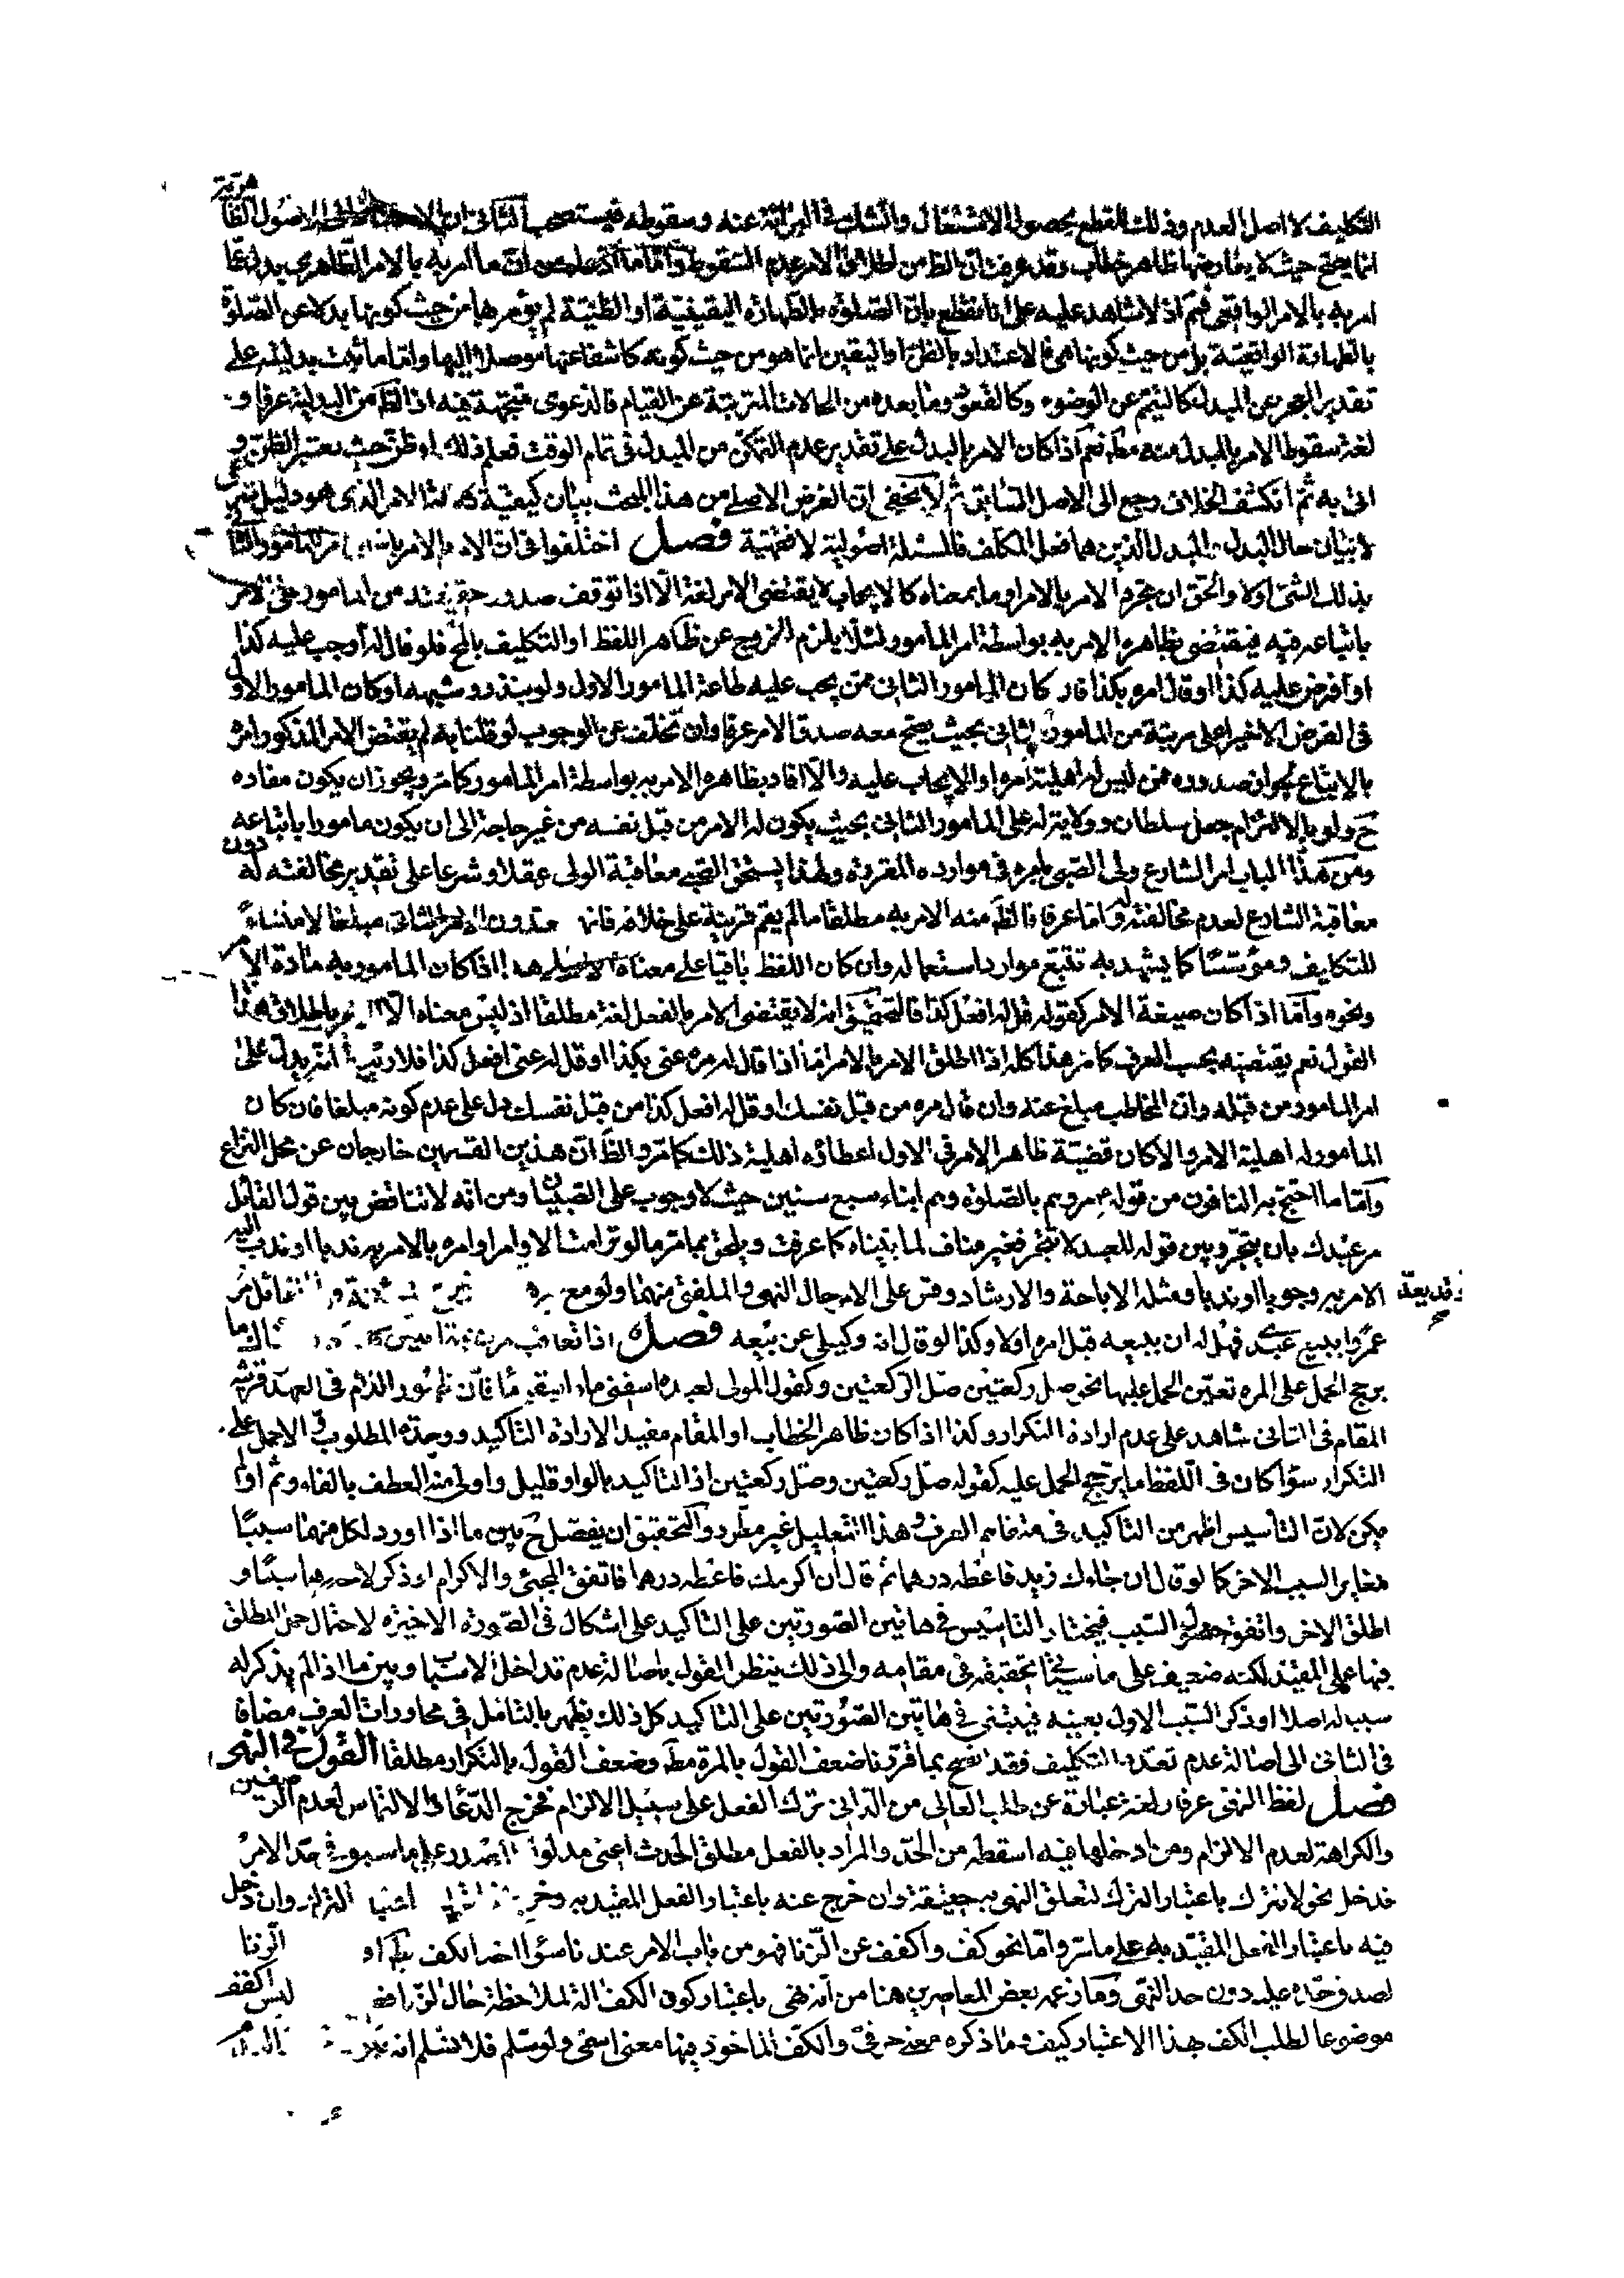 التكليف لا اصل العدم وذلك للقطع بحصول الاشتغال والشك في البرائة عنه وسقوطه فيستصحب الثانى ان الاصول الفقا
هتية
انما يحتج حيث لا يعارضها ظاهر خطاب وقد عرفت ان الظ من اطلاق الامر عدم السقوط وامّا ما ان ما امر به بالامر الظاهرى بدل عمّا
امر به بالامر الواقعى فمم اذ لا شاهد عليه على انا نقطع بان الصلوة بالطهارة اليقينيّة او الظنيّة لم يؤمر بها من حيث كونها بدلا عن الصّلوة
بالطهارة الواقعيّة بل من حيث كونها هى فالاعتداد بالظن او اليقين انما هو من حيث كونه كاشفا عنها موصلا اليها وامّا ما ثبت بدليته على
تقدير العجز عن المبدل كالتيمّم عن الوضوء وكالقعود وما بعده من الحالات المترتبة عن القيام فالدعوى متجهة فيه اذ الظ من البدلية عرفا و
لغة سقوط الامر بالمبدل منه مط نعم اذا كان الامر بالبدل على تقدير عدم التمكن من المبدل فى تمام الوقت فعلم ذلك او ظن حيث يعتبر الظن و
اتى به ثم انكشف الخلاف رجع الى الاصل السّابق ثم لا يخفى ان الغرض الاصلى من هذا البحث بيان كيفيّة دلالة الامر الذى هو دليل شرعى
لا بيان حال البدل والمبدل الذين هما فعل المكلف فالمسئلة اصولية لا فقهية فصل اختلفوا فى ان الامر بالامر بالشئ امر للمامور الثانى
بذلك الشئ اولا والحق ان مجرد الامر بالامر او ما بمعناه كالايجاب لا يقتضى الامر لغة الّا اذا توقف صدور حقيقته من المامور على الامر
باتباعه فيه فيقتضى بظاهره الامر به بواسطة امر المامور لئلّا يلزم الخروج عن ظاهر اللفظ او التكليف بالمح فلو قال له اوجب عليه كذا
او افرض عليه كذا او قال امره بكذا فان كان المامور الثانى ممّن يجب عليه طاعة المامور الاول ولو بنذر وشبهه او كان المامور الاول
فى الفرض الاخير اعلى مرتبة من المامور الثانى بحيث يصح معه صدق الامر عرفا وان تخلف عن الوجوب لو قلنا به لم يقتض الامر المذكور امره
بالاتباع لجواز صدوره ممن ليس له اهلية امره او الايجاب عليه والّا افاد بظاهره الامر به بواسطة امر المامور كما مرّ ويجوز ان يكون مفاده
ح ولو بالالتزام جعل سلطان وولاية له على المامور الثانى بحيث يكون له الامر من قبل نفسه من غير حاجة الى ان يكون مامورا باتباعه
ومن هذا الباب امر الشارع ولى الصبى بامره فى موارده المقررة ولهذا يستحق الصبى معاقبة الولى عقلا وشرعا على تقدير مخالفته له دون
معاقبة الشارع لعدم مخالفته له وامّا عرفا فالظ منه الامر به مطلقا ما لم يقم قرينة على خلافه فانهم يعدون الامر الثانى مبلغا لا منشاءً
للتكليف ومؤسّسًا كما يشهد به تتبّع موارد استعماله وان كان اللفظ باقيا على معناه الاصلى هذا اذا كان المامور به مادة الامر
ونحوه وامّا اذا كان صيغة الامر كقوله قل له افعل كذا فالتحقيق انه لا يقتضى الامر بالفعل لغة مطلقا اذ ليس معناه الّا الامر باطلاق هذا
القول نعم يقتضيه بحسب العرف كما مرّ هذا كله اذا اطلق الامر بالامر امّا اذا قال له مره عنى بكذا او قل له عنى افعل كذا فلا ريب انه يدل على
امر المامور من قبله وان المخاطب مبلغ عنه وان قال مره من قبل نفسك او قل له افعل كذا من قبل نفسك دل على عدم كونه مبلغا فان كان
المامور له اهلية الامر والا كان قضيّة ظاهر الامر فى الاول اعطاؤه اهلية ذلك كما مرّ والظ انّ هذين القسمين خارجان عن محل النزاع
وامّا ما احتج به النافون من قوله ع مروهم بالصّلوة وهم ابناء سبع سنين حيث لا وجوب على الصّبيان ومن انّه لا تناقض بين قول القائل
مر عبدك بان يتجر وبين قوله للعبد لا تتجر فغير مناف لما بيّناه كما عرفت ويلحق بما مرّ ما لو ترامت الاوامر او امره بالامر به ندبا او ندب اليه
الامر به وجوبا او ندبا ومثله الاباحة والارشاد وقس على الامر حال النهى والملفق منهما ولو مع
وقد يعدّ
عمروا ببيع عبده فهل له ان يبيعه قبل امره اولا وكذا لو قال انه وكيلى عن بيعه فصل اذا تعاقب هناك ما
يرجح الحمل على المرة تعيّن الحمل عليها نحو صل ركعتين صلّ الركعتين وكقول المولى لعبده اسقنى ماء اسقنى مأ فانّ ظهور اللام فى العهد وقرينة
المقام فى الثانى شاهد على عدم ارادة التكرار وكذا اذا كان ظاهر الخطاب او المقام مفيد الارادة التأكيد ووحدة المطلوب والا حمل على
التكرار سوآ كان فى اللفظ ما يرجّح الحمل عليه كقوله صلّ ركعتين وصلّ ركعتين اذ التاكيد بالواو قليل واولى منه العطف بالفاء وثم او لم
يكن لانّ التأسيس اظهر من التاكيد فى متفاهم العرف وهذا التعليل غير مطّرد والتحقيق ان يفصّل ح بين ما اذا اورد لكل منهما سببًا
مغاير السبب الاخر كما لو قال ان جاءك زيد فاعطه درهما ثم قال ان اكرمك فاعطه درهما فاتفق المجئ والاكرام او ذكر لاحدهما سببًا و
اطلق الاخر واتفق حصول السّبب فيختار التاسيس فى هاتين الصّورتين على التاكيد على اشكال فى الصّورة الاخيرة لاحتمال حمل المطلق
فيها على المقيّد لكنه ضعيف على ما سيجئ تحقيقه فى مقامه والى ذلك ينظر القول باصالة عدم تداخل الاسباب وبين ما اذا لم يذكر له
سبب له اصلا او ذكر السّبب الاول بعينه فيبتنى فى هاتين الصّورتين على التاكيد كل ذلك يظهر بالتامّل فى محاورات العرف مضافا
فى الثانى الى اصالة عدم تعدد التكليف فقد اتضح بما قررنا ضعف القول بالمرة مط وضعف القول بالتكرار مطلقا القول فى النهى
فصل لفظ النهى عرفا ولغة عبارة عن طلب العالى من الدّانى ترك الفعل على سبيل الالزام فخرج الدّعاء والالتماس لعدم الوصفين
والكراهة لعدم الالزام ومن ادخلها فيه اسقطه من الحدّ والمراد بالفعل مطلق الحدث اعنى مدلول المصدر على ما سبق فى حدّ الامر
فدخل نحو لا تترك باعتبار الترك لتعلق النهى به حقيقة وان خرج عنه باعتبار الفعل المقيد به وخرج اترك باعتبار الترك وان دخل
فيه باعتبار الفعل المقيّد به على ما مرّ وامّا نحو كف واكفف عن الزّنا فهو من باب الامر عندنا سوآ اخذ الكف الزنا
لصدق حدّه عليه دون حد النهى وما زعمه بعض المعاصرين هنا من انه نهى باعتبار كون الكف الة لملاحظة حال الزنا ليس اكفف
موضوعا لطلب الكف بهذا الاعتبار كيف وما ذكره معنى حرفىّ والكفّ الماخوذ فيها معنى اسمى ولو سلّم فلا نسلّم انه